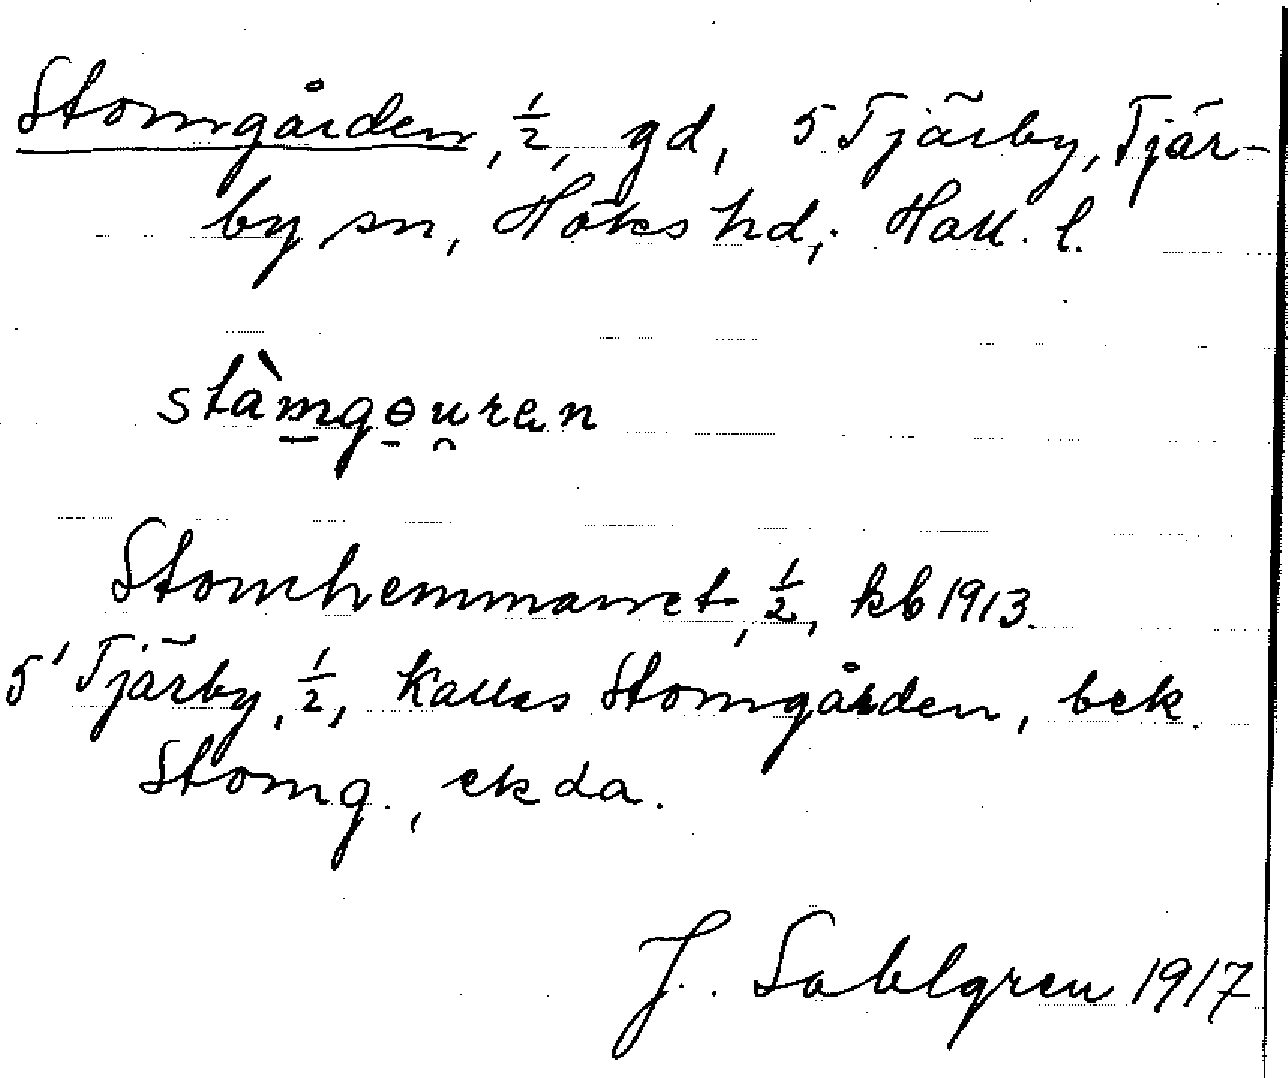 Stomgården, ½, gd, 5 Tjärby, Tjär-
by sn, Höks hd, Hall. l.
stàmgɵuren
Stomhemmanet, ½, kb 1913.
5' Tjärby, ½, kallas Stomgården, bek.
Stomg., ekda.
J. Sahlgren 1917